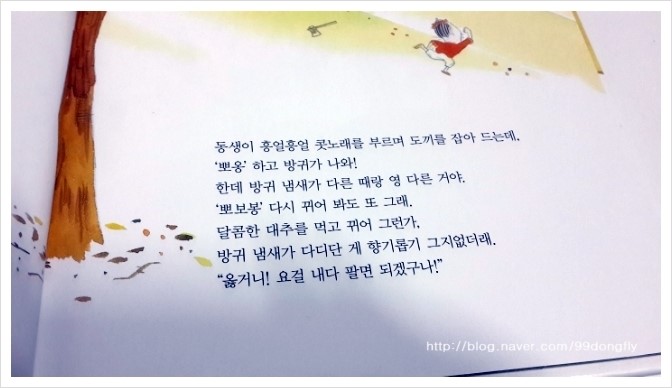 동생이 흥얼흥얼 콧노래를 부르며 도끼를 잡아 드는데.
'뽀옹' 하고 방귀가 나와!
한데 방귀 냄새가 다른 때랑 영 다른 거야.
'뽀보봉' 다시 뀌어 봐도 또 그래.
달콤한 대추를 먹고 뀌어 그런가,
방귀 냄새가 다디단 게 향기롭기 그지없더래.
"옳거니! 요걸 내다 팔면 되겠구나!"
http://blog.naver.com/99dongfly